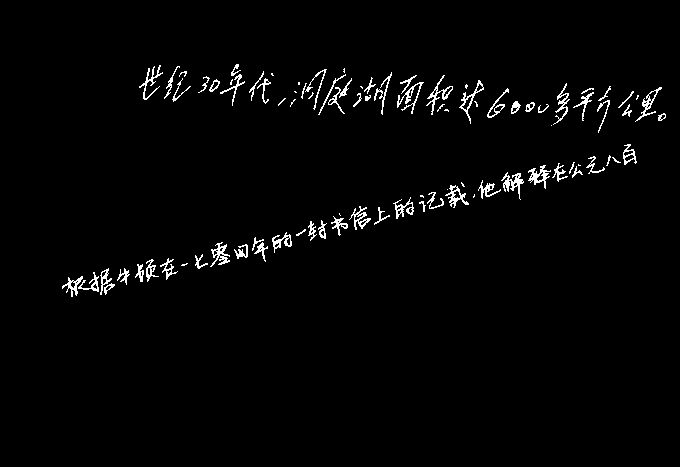 世纪30年代,洞庭湖面积达6000多平方公里。
根据牛顿在一七零四年的一封书信上的记载,他解释在公元八百